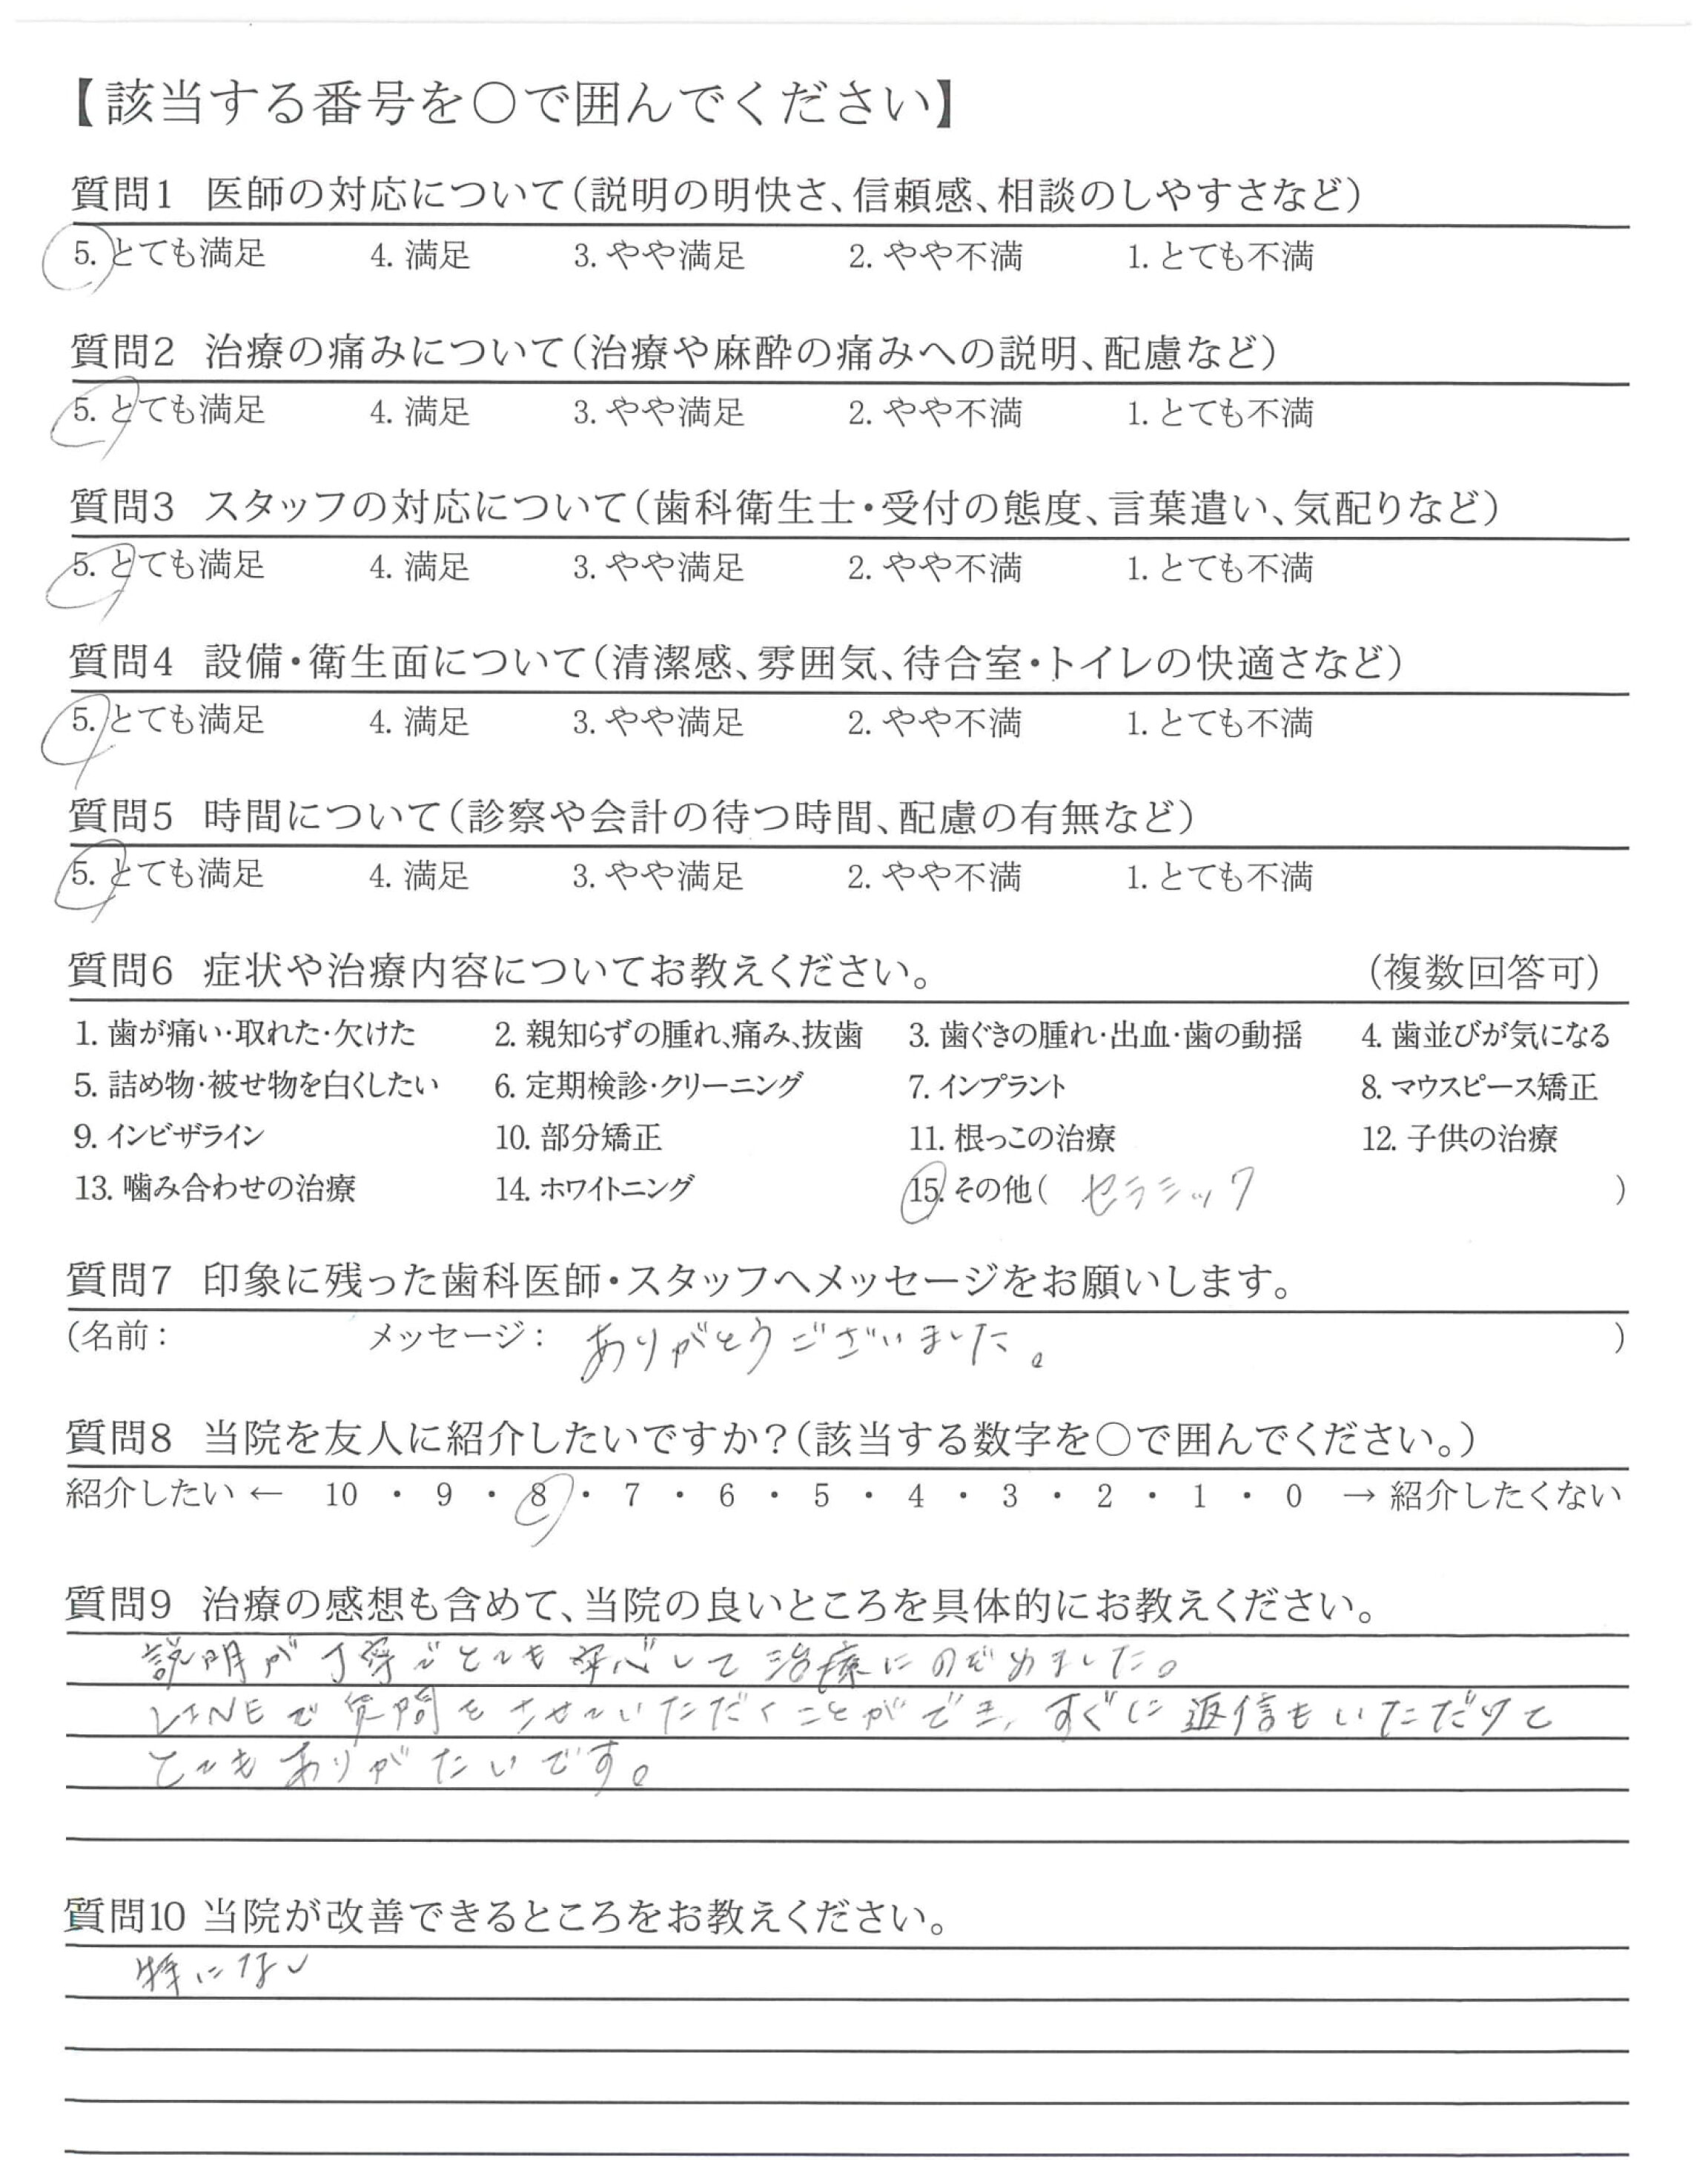 【該当する番号を〇で囲んでください】
質問1 医師の対応について(説明の明快さ、信頼感、相談のしやすさなど)
5. とても満足 4. 満足 3. やや満足 2. やや不満 1. とても不満
質問2 治療の痛みについて(治療や麻酔の痛みへの説明、配慮など)
5. とても満足 4. 満足 3. やや満足 2. やや不満 1. とても不満
質問3 スタッフの対応について(歯科衛生士・受付の態度、言葉遣い、気配りなど)
5. とても満足 4. 満足 3. やや満足 2. やや不満 1. とても不満
質問4 設備・衛生面について(清潔感、雰囲気、待合室・トイレの快適さなど)
5. とても満足 4. 満足 3. やや満足 2. やや不満 1. とても不満
質問5 時間について(診察や会計の待つ時間、配慮の有無など)
5. とても満足 4. 満足 3. やや満足 2. やや不満 1. とても不満
質問6 症状や治療内容についてお教えください。 (複数回答可)
1. 歯が痛い・取れた・欠けた 2. 親知らずの腫れ、痛み、抜歯 3. 歯ぐきの腫れ・出血・歯の動揺 4. 歯並びが気になる
5. 詰め物・被せ物を白くしたい 6. 定期検診・クリーニング 7. インプラント 8. マウスピース矯正
9. インビザライン 10. 部分矯正 11. 根っこの治療 12. 子供の治療
13. 噛み合わせの治療 14. ホワイトニング 15. その他( セラミック )
質問7 印象に残った歯科医師・スタッフへメッセージをお願いします。
(名前: メッセージ: ありがとうございました。 )
質問8 当院を友人に紹介したいですか?(該当する数字を〇で囲んでください。)
紹介したい ← 10 ・ 9 ・ 8 ・ 7 ・ 6 ・ 5 ・ 4 ・ 3 ・ 2 ・ 1 ・ 0 → 紹介したくない
質問9 治療の感想も含めて、当院の良いところを具体的にお教えください。
説明が丁寧でとても安心して治療にのぞめました。
LINEで質問をさせていただくことができ、すぐに返信もいただけて
とてもありがたいです。
質問10 当院が改善できるところをお教えください。
特にない